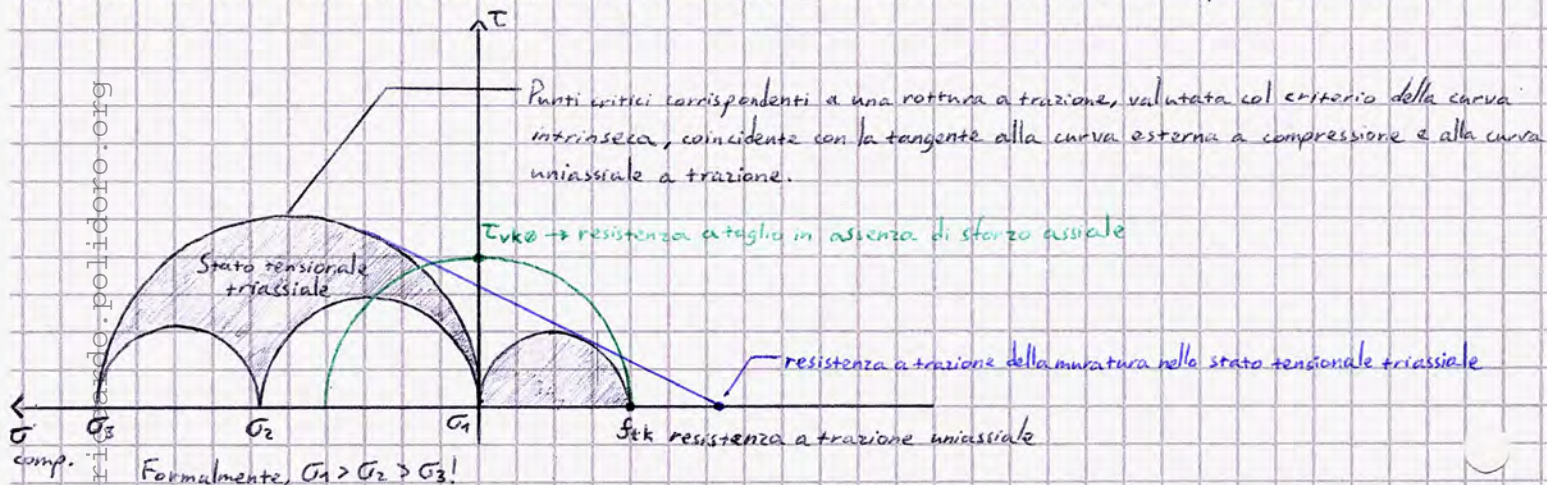 τ
Punti critici corrispondenti a una rottura a trazione, valutata col criterio della curva
intrinseca, coincidente con la tangente alla curva esterna a compressione e alla curva
uniassiale a trazione.
τvk0 → resistenza a taglio in assenza di sforzo assiale
Stato tensionale
triassiale
resistenza a trazione della muratura nello stato tensionale triassiale
σ
comp.
σ3
σ2
σ1
ftk resistenza a trazione uniassiale
Formalmente, σ1 > σ2 > σ3!
riccardo.polidoro.org